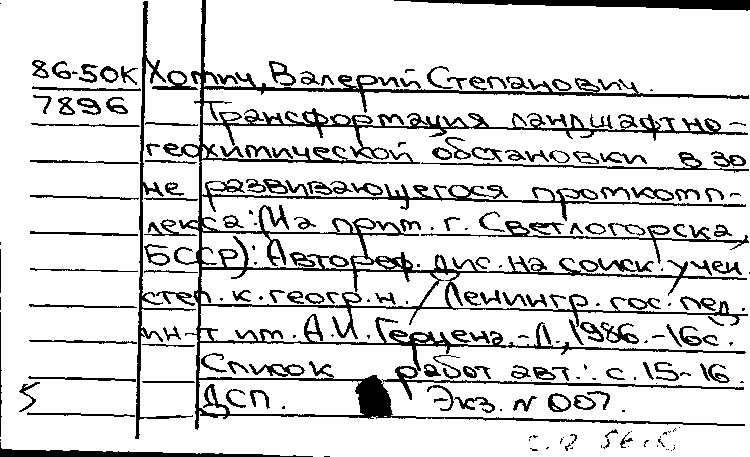 86-50К Хотич, Валерий Степанович.
7896 Трансформация ландшафтно-
геохимической обстановки в зо
не развивающегося промкомп-
лекса: (На прим. г. Светлогорска,
БССР): Автореф. дис. на соиск. учен.
степ. к. геогр. н. / Ленингр. гос. пед.
ин-т им. А.И. Герцена. - Л., 1986. - 16с.
Список работ авт.: с. 15-16.
ДСП. Экз. N 007.